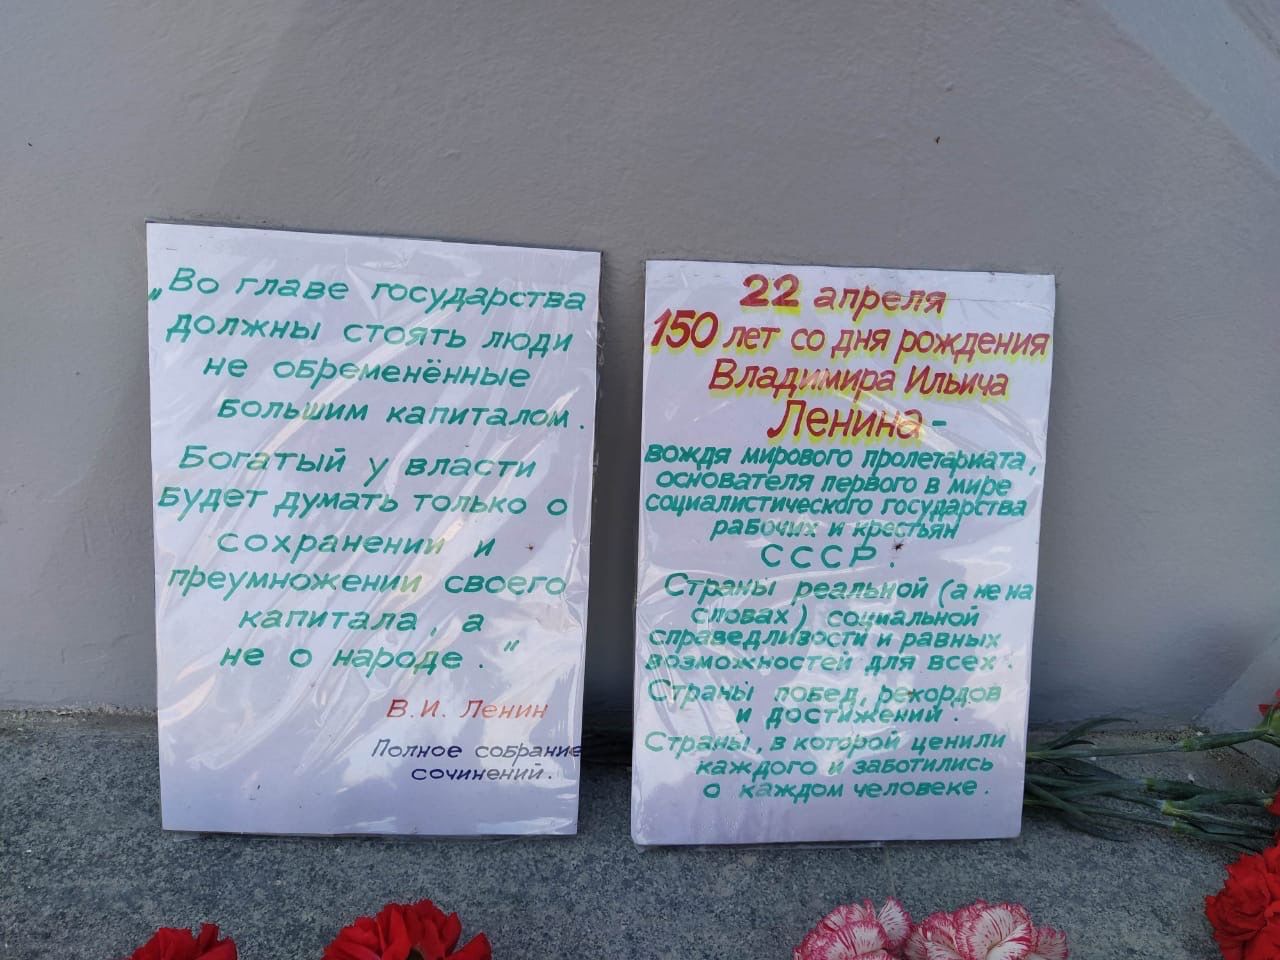 „Во главе государства
должны стоять люди
не обременённые
большим капиталом.
Богатый у власти
будет думать только о
сохранении и
преумножении своего
капитала, а
не о народе."
В.И. Ленин
Полное собрание
сочинений.
22 апреля
150 лет со дня рождения
Владимира Ильича
Ленина -
вождя мирового пролетариата,
основателя первого в мире
социалистического государства
рабочих и крестьян
СССР.
Страны реальной (а не на
словах) социальной
справедливости и равных
возможностей для всех.
Страны побед, рекордов
и достижений.
Страны, в которой ценили
каждого и заботились
о каждом человеке.